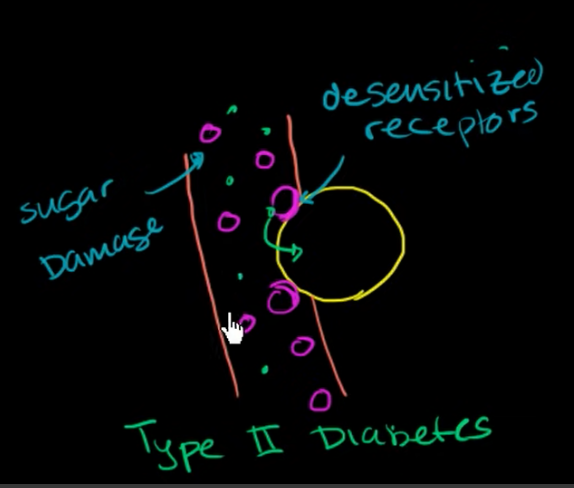 desensitized
receptors
sugar
Damage
Type II Diabetes